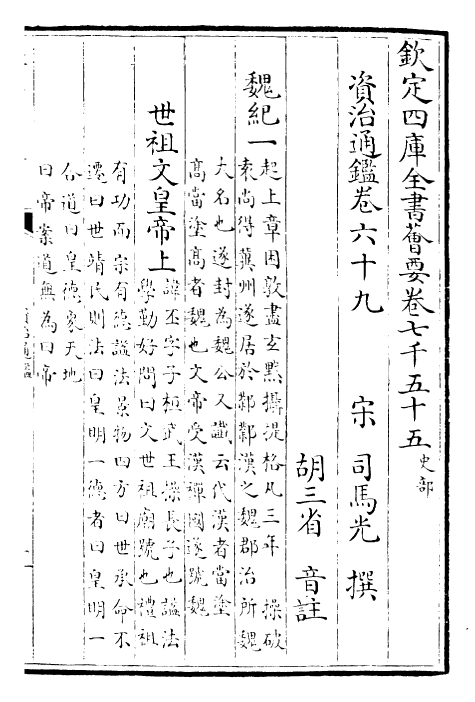 欽定四庫全書薈要卷七千五十五 史部
資治通鑑卷六十九
宋 司馬光 撰
胡三省 音註
魏紀一
起上章困敦盡玄黓攝提格凡三年 操破
袁尚得冀州遂居於鄴鄴漢之魏郡治所魏
大名也遂封為魏公又讖云代漢者當塗
高當塗高者魏也文帝受漢禪國遂號魏
世祖文皇帝上
諱丕字子桓武王操長子也諡法
學勤好問曰文世祖廟號也禮祖
有功而宗有德諡法景物四方曰世承命不
遷曰世靖民則法曰皇明一德者曰皇明一
合道曰皇德象天地
曰帝案道無為曰帝